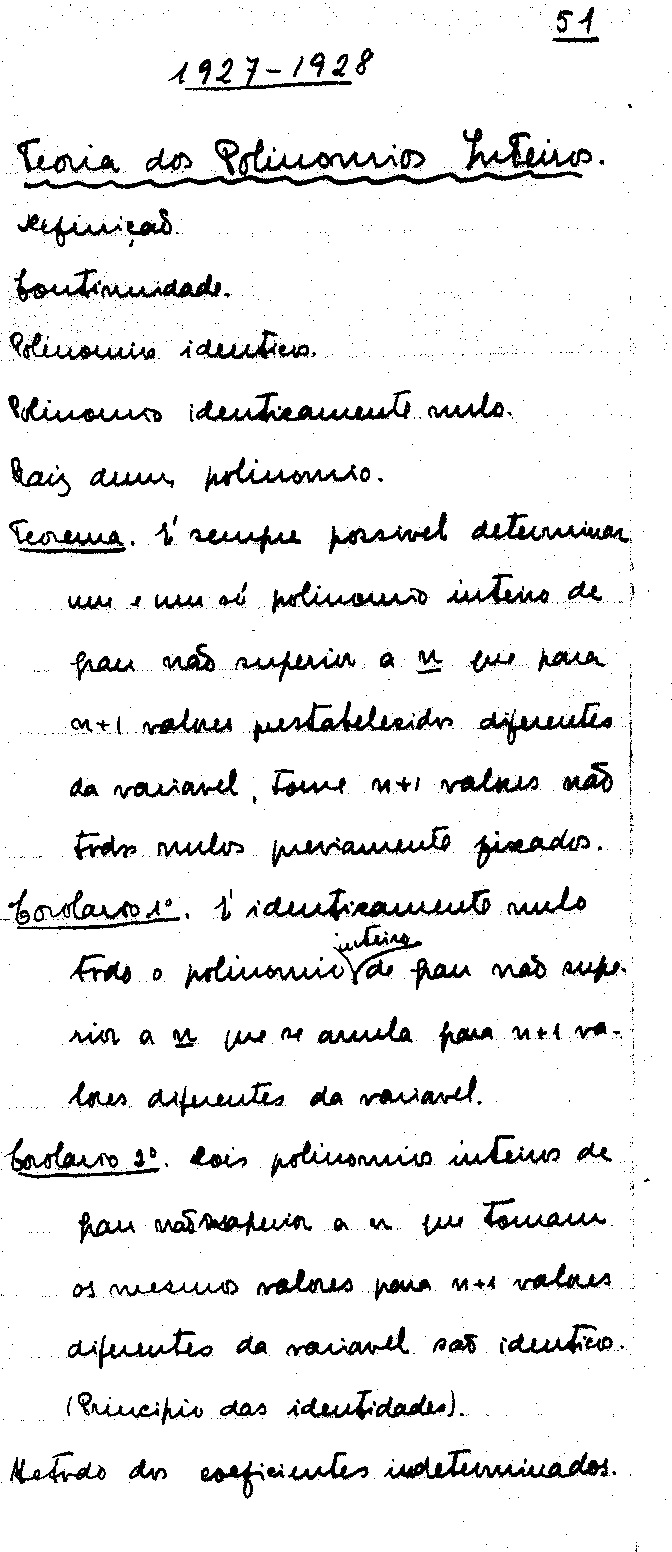 51
1927-1928
Teoria dos Polinomios Inteiros.
Definição.
Continuidade.
Polinomios identicos.
Polinomio identicamente nulo.
Raiz dum polinomio.
Teorema. É sempre possivel determinar
um e um só polinomio inteiro de
grau não superior a n que para
n+1 valores prestabelecidos diferentes
da variavel, tome n+1 valores não
todos nulos previamente fixados.
Corolario 1º. É identicamente nulo
todo o polinomio inteiro de grau não supe-
rior a n que se anula para n+1 va-
lores diferentes da variavel.
Corolario 2º. Dois polinomios inteiros de
grau não superior a n que tomam
os mesmos valores para n+1 valores
diferentes da variavel são identicos.
(Principio das identidades).
Metodo dos coeficientes indeterminados.